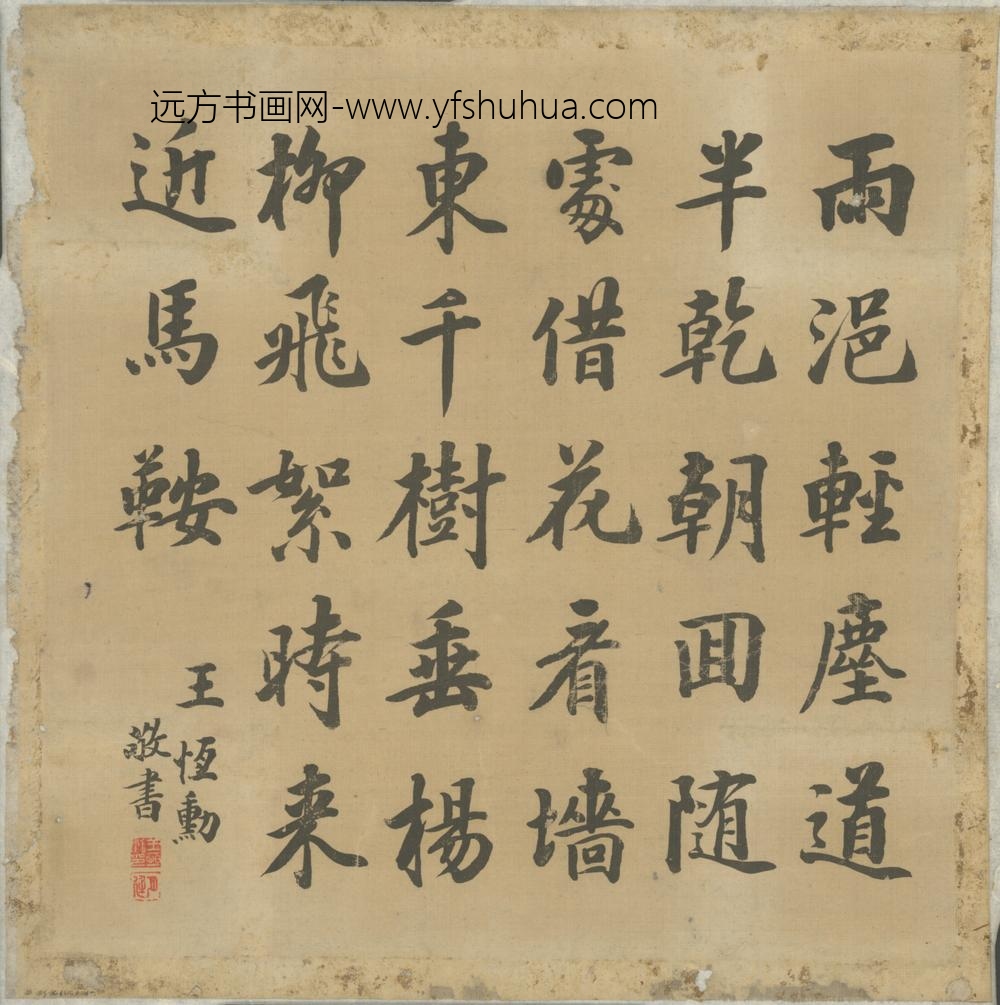 远方书画网-www.yfshuhua.com
雨浥輕塵道
半乾朝囬随
處借花看墻
東千樹垂楊
柳飛絮時来
近馬鞍
王恆勳
敬書